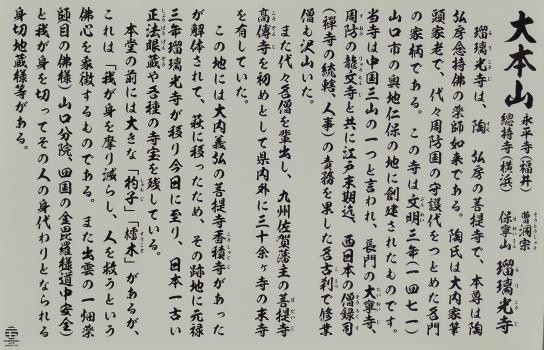 大本山 永平寺(福井) 總持寺(横浜) 曹洞宗 保寧山 瑠璃光寺
瑠璃光寺は、陶 弘房の菩提寺で、本尊は陶
弘房念持佛の薬師如来である。陶氏は大内家筆
頭家老で、代々周防国の守護代をつとめた名門
の家柄である。この寺は文明三年(一四七一)
山口市の奥地仁保の地に創建されたものです。
当寺は中国三山の一つと言われ、長門の大寧寺、
周防の龍文寺と共に江戸末期迄、西日本の僧録司
(禅寺の統轄、人事)の責務を果した名古刹で修業
僧も沢山いた。
また代々名僧を輩出し、九州佐賀藩主の菩提寺
高傳寺を初めとして県内外に三十余ヶ寺の末寺
を有していた。
この地には大内義弘の菩提寺香積寺があった
が解体されて、萩に移ったため、その跡地に元禄
三年瑠璃光寺が移り今日に至り、日本一古い
正法眼蔵や各種の寺宝を残している。
本堂の前には大きな「杓子」「擂木」があるが、
これは「我が身を摩り減らし、人を救うという
佛心を象徴するものである。また出雲の一畑薬
師(目の佛様)山口分院、四国の金毘羅様(道中安全)
と我が身を切ってその人の身代わりとなられる
身切地蔵様等がある。